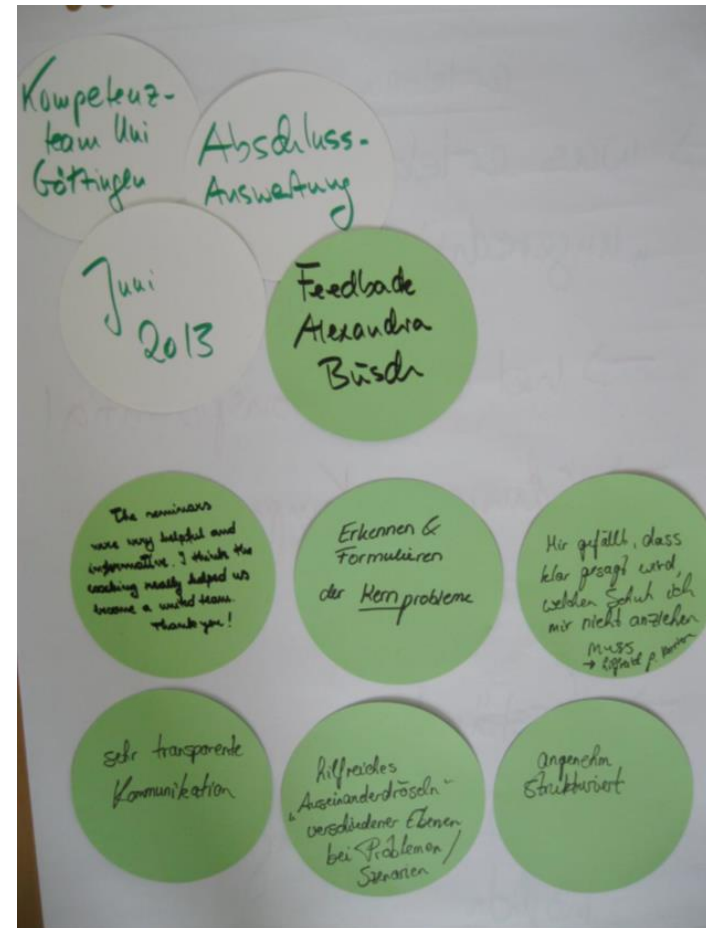 Kompetenz-
team Uni
Göttingen
Abschluss-
Auswertung
Juni
2013
Feedback
Alexandra
Büsch
The seminars
were very helpful and
informative. I think the
coaching really helped us
become a united team.
Thank you!
Erkennen &
Formulieren
der Kernprobleme
Mir gefällt, dass
klar gesagt wird,
welchen Schuh ich
mir nicht anziehen
muss
→ hilfreich f.
sehr transparente
Kommunikation
hilfreiches
„Auseinanderdröseln“
verschiedener Ebenen
bei Problemen /
Szenarien
angenehm
strukturiert